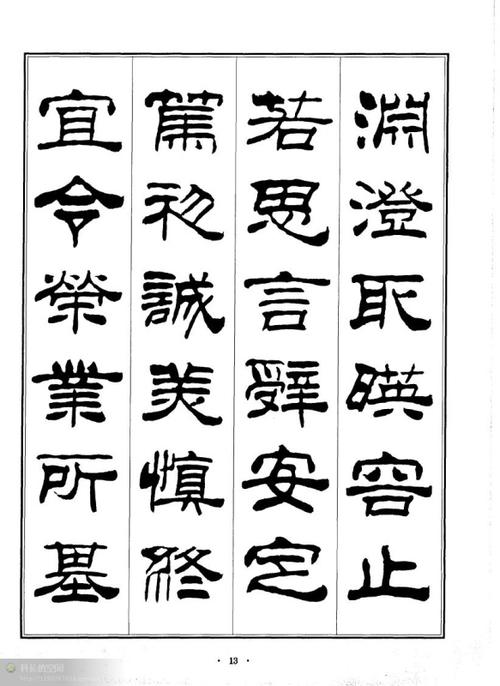 淵澄取暎容止
若思言辭安定
篤初誠美慎終
宜令榮業所基
· 13 ·
科长的空间